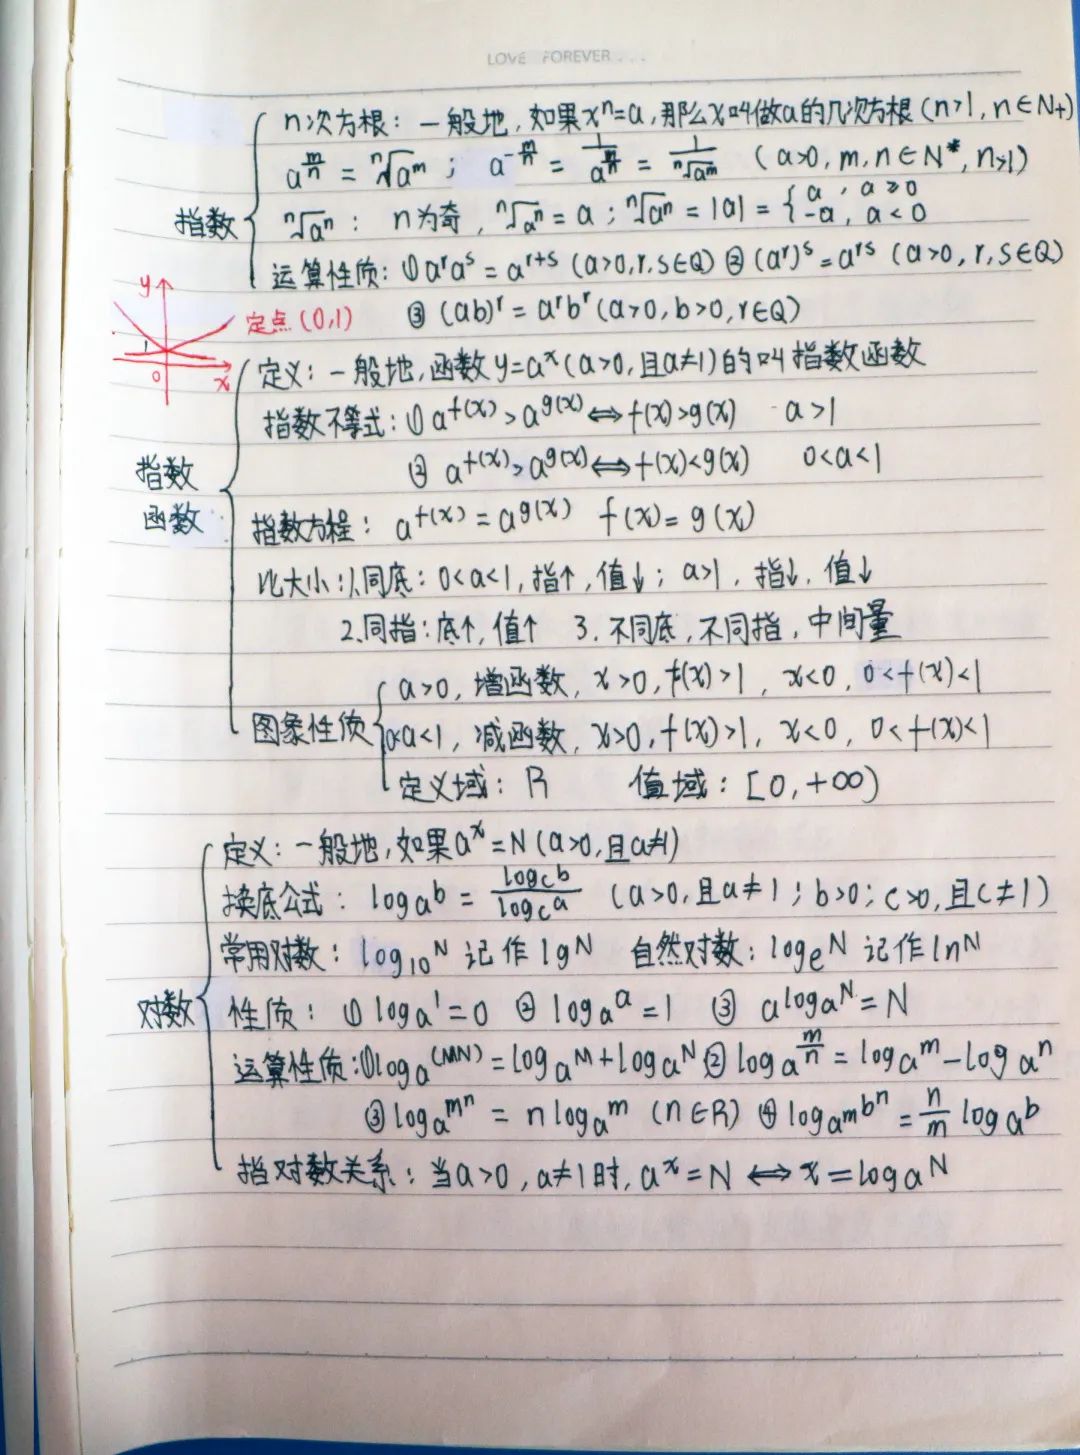 LOVE FOREVER...
n次方根：一般地，如果xⁿ=a，那么x叫做a的几次方根（n>1，n∈N+）
a^(m/n) = ⁿ√a^m ； a^(-m/n) = 1/a^(m/n) = 1/ⁿ√a^m （a>0，m，n∈N*，n>1）
指数
ⁿ√aⁿ： n为奇，ⁿ√aⁿ=a；ⁿ√aⁿ=|a|={a，a≥0 -a，a<0
运算性质：①a^r a^s=a^(r+s)（a>0，r，s∈Q）②(a^r)^s=a^(rs)（a>0，r，s∈Q）
③(ab)^r=a^r b^r（a>0，b>0，r∈Q）
y
定点(0,1)
1
0 x
定义：一般地，函数y=a^x（a>0，且a≠1）的叫指数函数
指数不等式：①a^f(x)>a^g(x)⇔f(x)>g(x) a>1
②a^f(x)>a^g(x)⇔f(x)<g(x) 0<a<1
指数
函数
指数方程：a^f(x)=a^g(x) f(x)=g(x)
比大小：1.同底：0<a<1，指↑，值↓；a>1，指↓，值↓
2.同指：底↑，值↑ 3.不同底，不同指，中间量
a>0，增函数，x>0，f(x)>1，x<0，0<f(x)<1
图象性质
0<a<1，减函数，x>0，f(x)>1，x<0，0<f(x)<1
定义域：R 值域：[0，+∞)
定义：一般地，如果a^x=N（a>0，且a≠1）
换底公式：log_a b = log_c b / log_c a （a>0，且a≠1；b>0；c>0，且c≠1）
常用对数：log₁₀N 记作lgN 自然对数：log_e N 记作lnN
对数
性质：①log_a 1=0 ②log_a a=1 ③a^(log_a N)=N
运算性质：①log_a (MN)=log_a M+log_a N ②log_a m/n=log_a m-log_a n
③log_a mⁿ=nlog_a m（n∈R）④log_(a^m) bⁿ=n/m log_a b
指对数关系：当a>0，a≠1时，a^x=N⇔x=log_a N